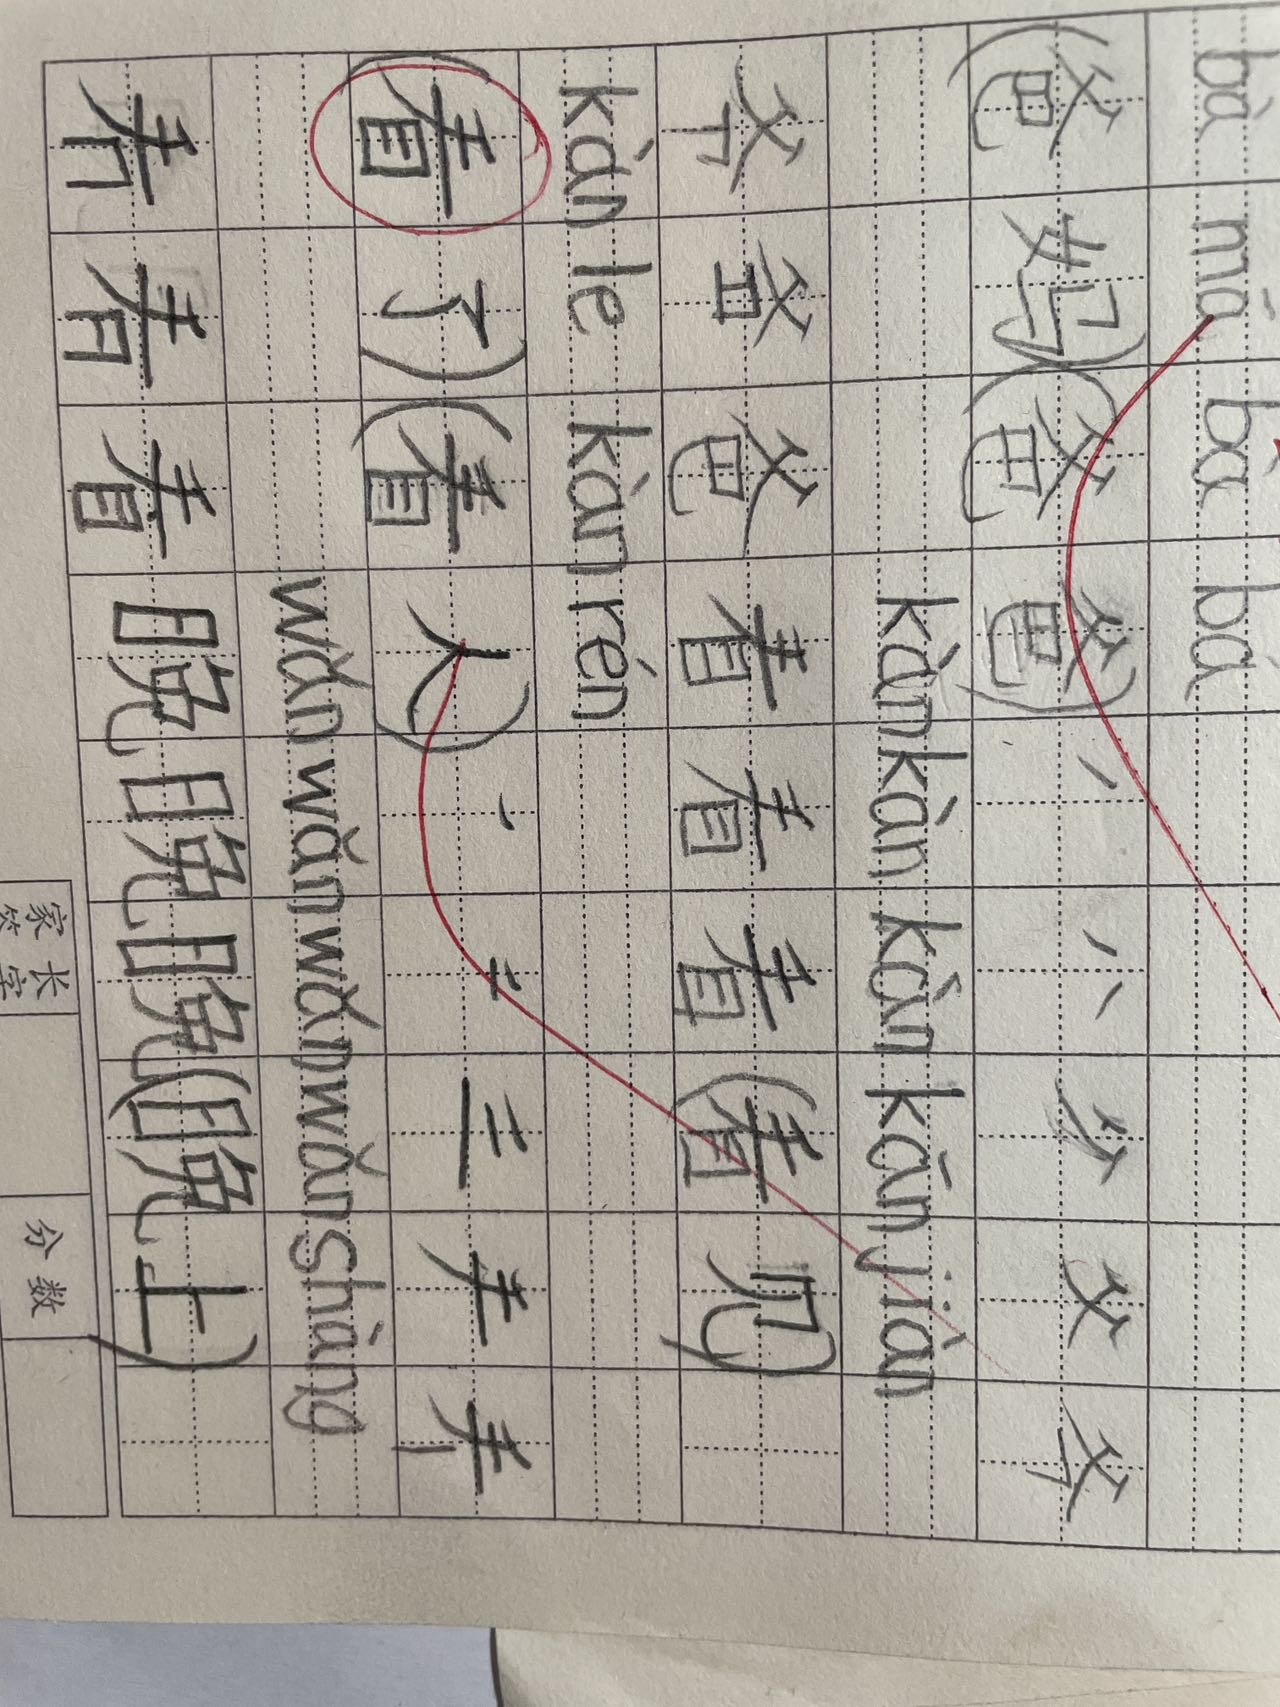 bà mā bà bà
(爸妈)(爸爸) 八 父
kàn kàn kàn kàn jiàn
爸看看看(看见)
kàn le kàn rén
(看了)(看人) 二 三
wǎn wǎn wǎn wǎn shàng
看晚晚晚(晚上)
家长签字 分数